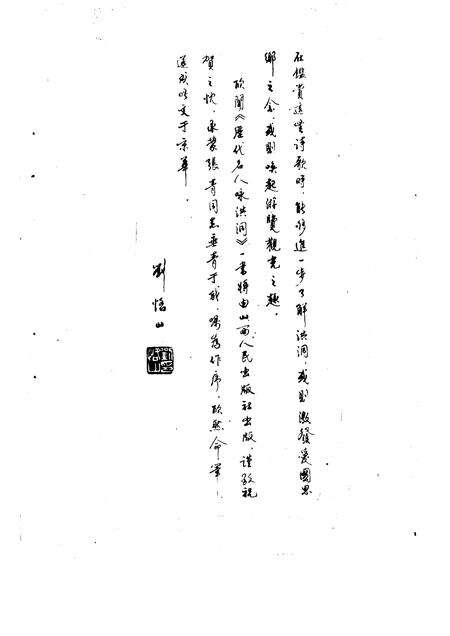 在鑑賞這些诗歌時,能够進一步了解洪洞,或則激發愛國思
鄉之念,或則喚起游覽觀光之趣。
欣聞《歷代名人咏洪洞》一書將由山西人民出版社出版,謹致祝
賀之忱,承蒙張青同志垂青于我,嘱為作序,欣然命筆,
遂成此文于京華
劉悟山